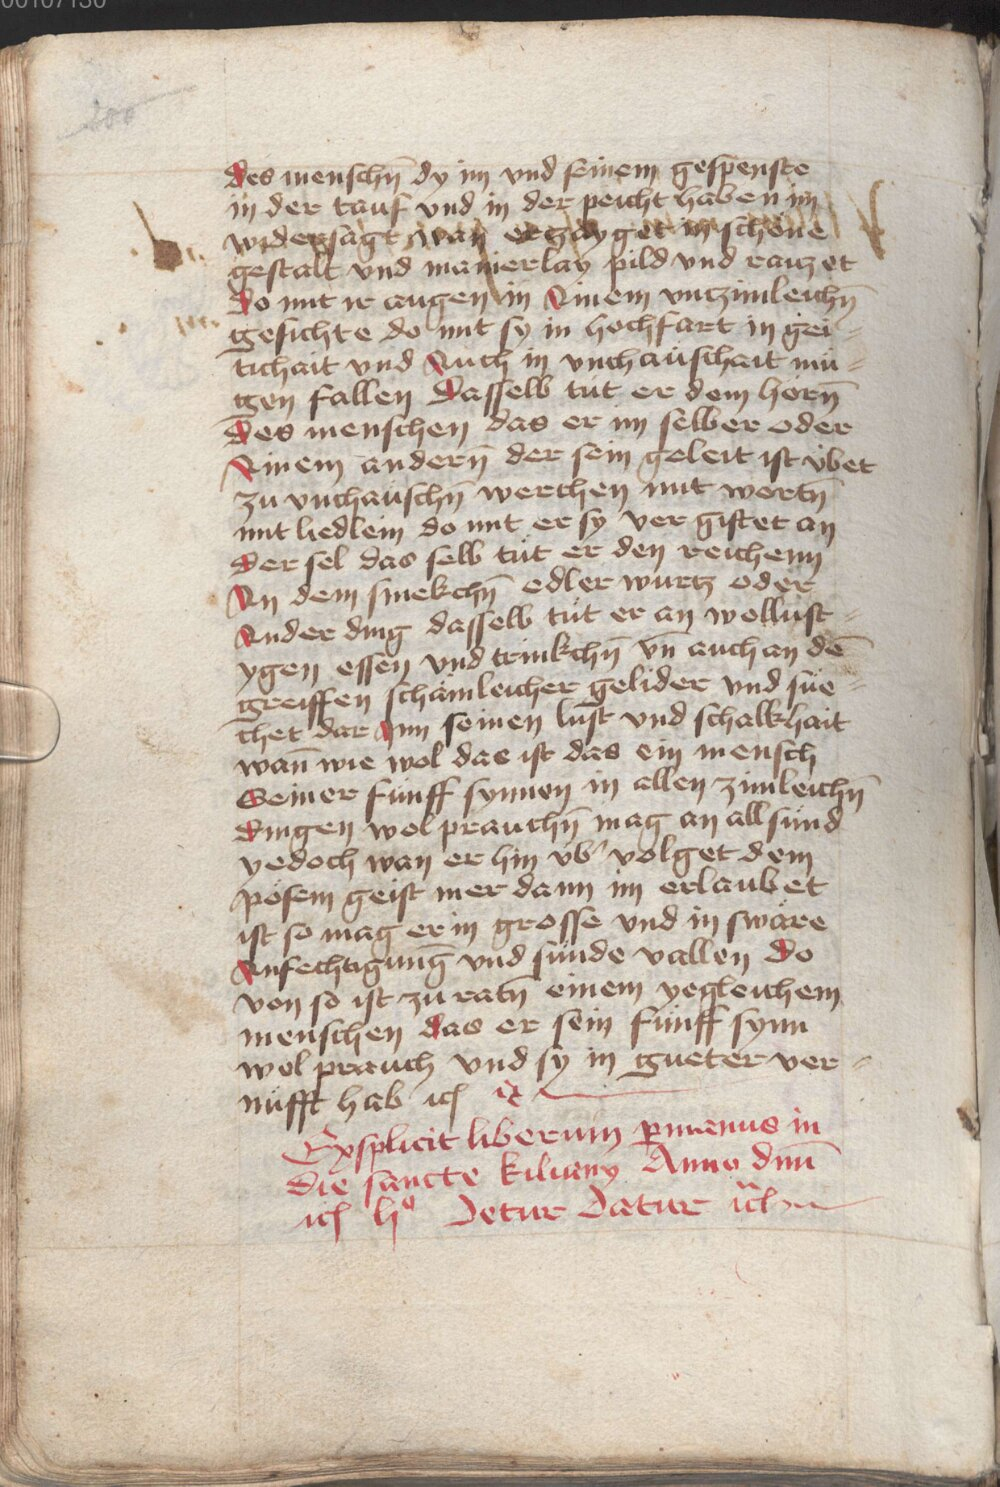 00107130
des menschn̄ dy im vnd seinem gespenste
in der tauf vnd in der peicht haben im
widersagt wan erczayget in schöne
gestalt vnd manierlay pild vnd raiczet
do mit ir augen in Ainem vnczimleichn̄
gesichte do mit sy in hochfart in gei-
tichait vnd Auch in vnchäuschait mü-
gen fallen Dasselb tüt er dem horn̄
Des menschen das er im selber oder
Ainem andern̄ der sein geleit ist übet
zu vnchäuschn̄ werchen mit wortn̄
mit liedlein do mit er sy ver giftet an
Der sel das selb tüt er den reichenn
An dem smekchn̄ edler würtz oder
Ander ding dasselb tüt er an wollust-
ygen essen vnd trinkchn̄ vn̄ auch an dē
greiffen schämleicher gelider vnd süe-
chet dar Inn seinen lust vnd schalkhait
wan̄ wie wol das ist das ein mensch
Seiner fünff synnen in allen zimleichn̄
dingen wol prauchn̄ mag an all sünd
yedoch wan er hin vb' volget dem
pösem geist mer dann im erlaubet
ist so mag er in grosse vnd in swäre
Anfechtigunḡ vnd sünde vallen Do
von so ist zu ratn̄ einem yegleichem
menschen das er sein fünff synn
wol prauch vnd sy in gueter ver-
nüfft hab ich
Exsplicit liberum ꝑ manus in
die sancte kiliany Anno dnī
Detur Datur